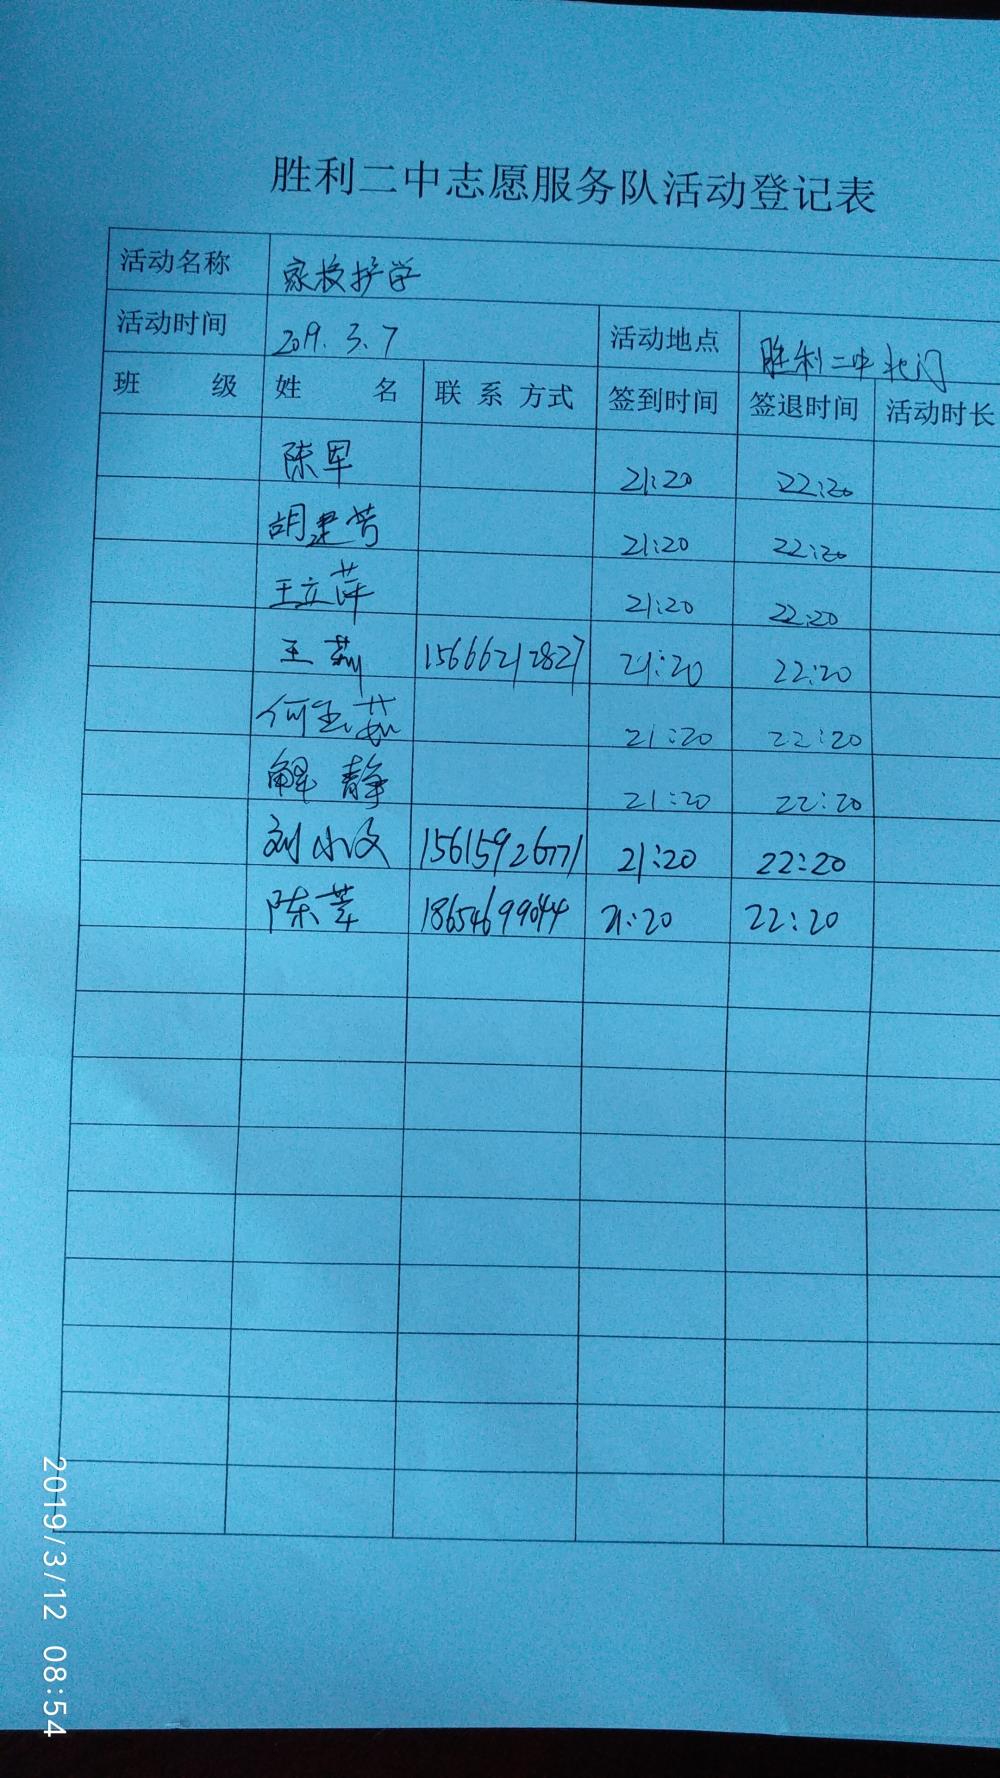 胜利二中志愿服务队活动登记表
活动名称 家校护学
活动时间 2019.3.7 活动地点 胜利二中北门
班 级 姓 名 联 系 方式 签到时间 签退时间 活动时长
陈军 21:20 22:20
胡建芳 21:20 22:20
王立萍 21:20 22:20
王莉 15666212827 21:20 22:20
何玉茹 21:20 22:20
解静 21:20 22:20
刘小文 15615926771 21:20 22:20
陈苹 18654699044 21:20 22:20
2019/3/12 08:54